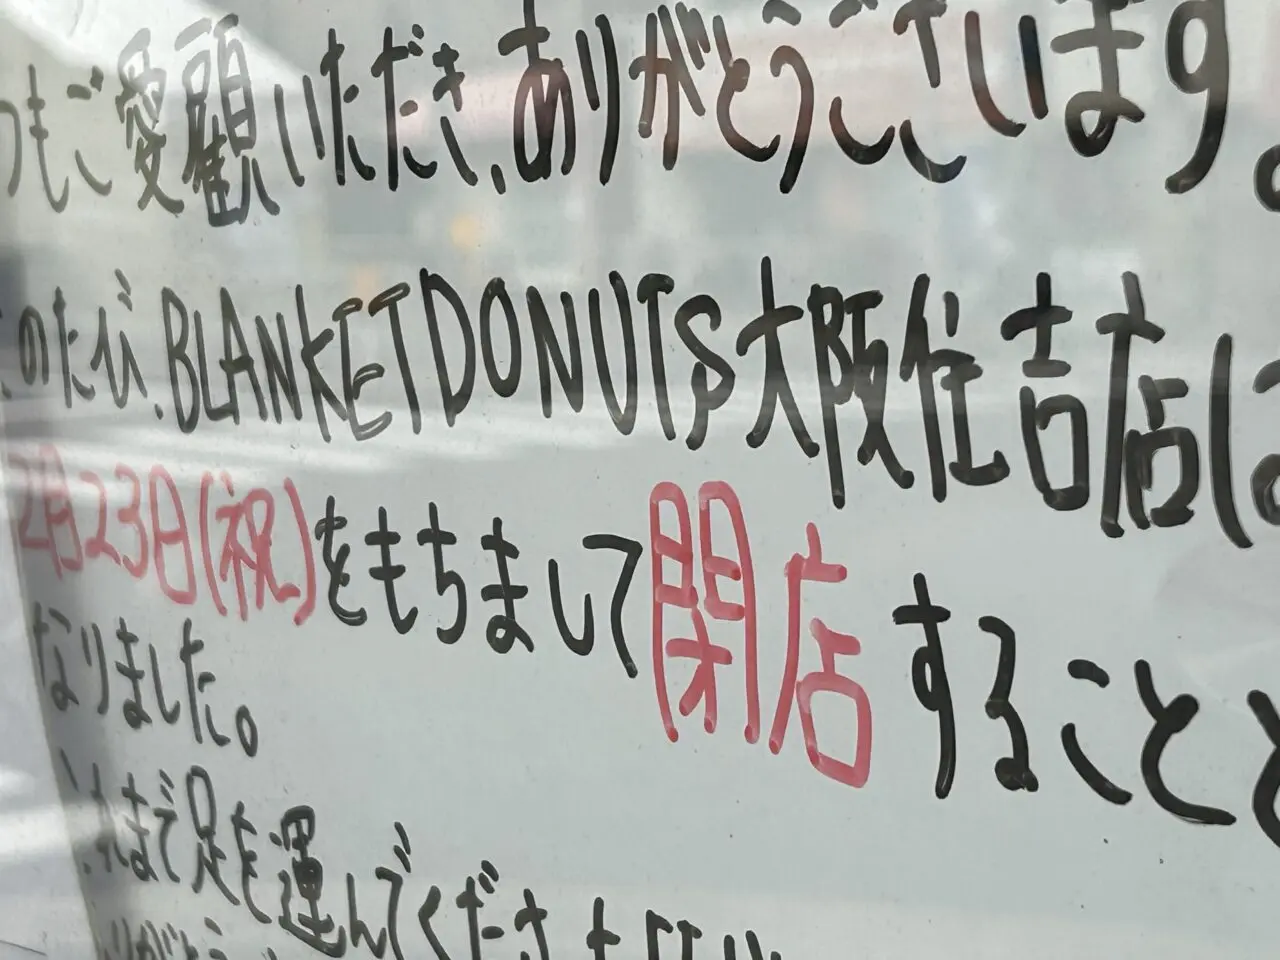 つもご愛顧いただき、ありがとうございます。
このたび、BLANKET DONUTS大阪住吉店は
2月23日(祝)をもちまして閉店することと
なりました。
これまで足を運んでくださ
ありがとう